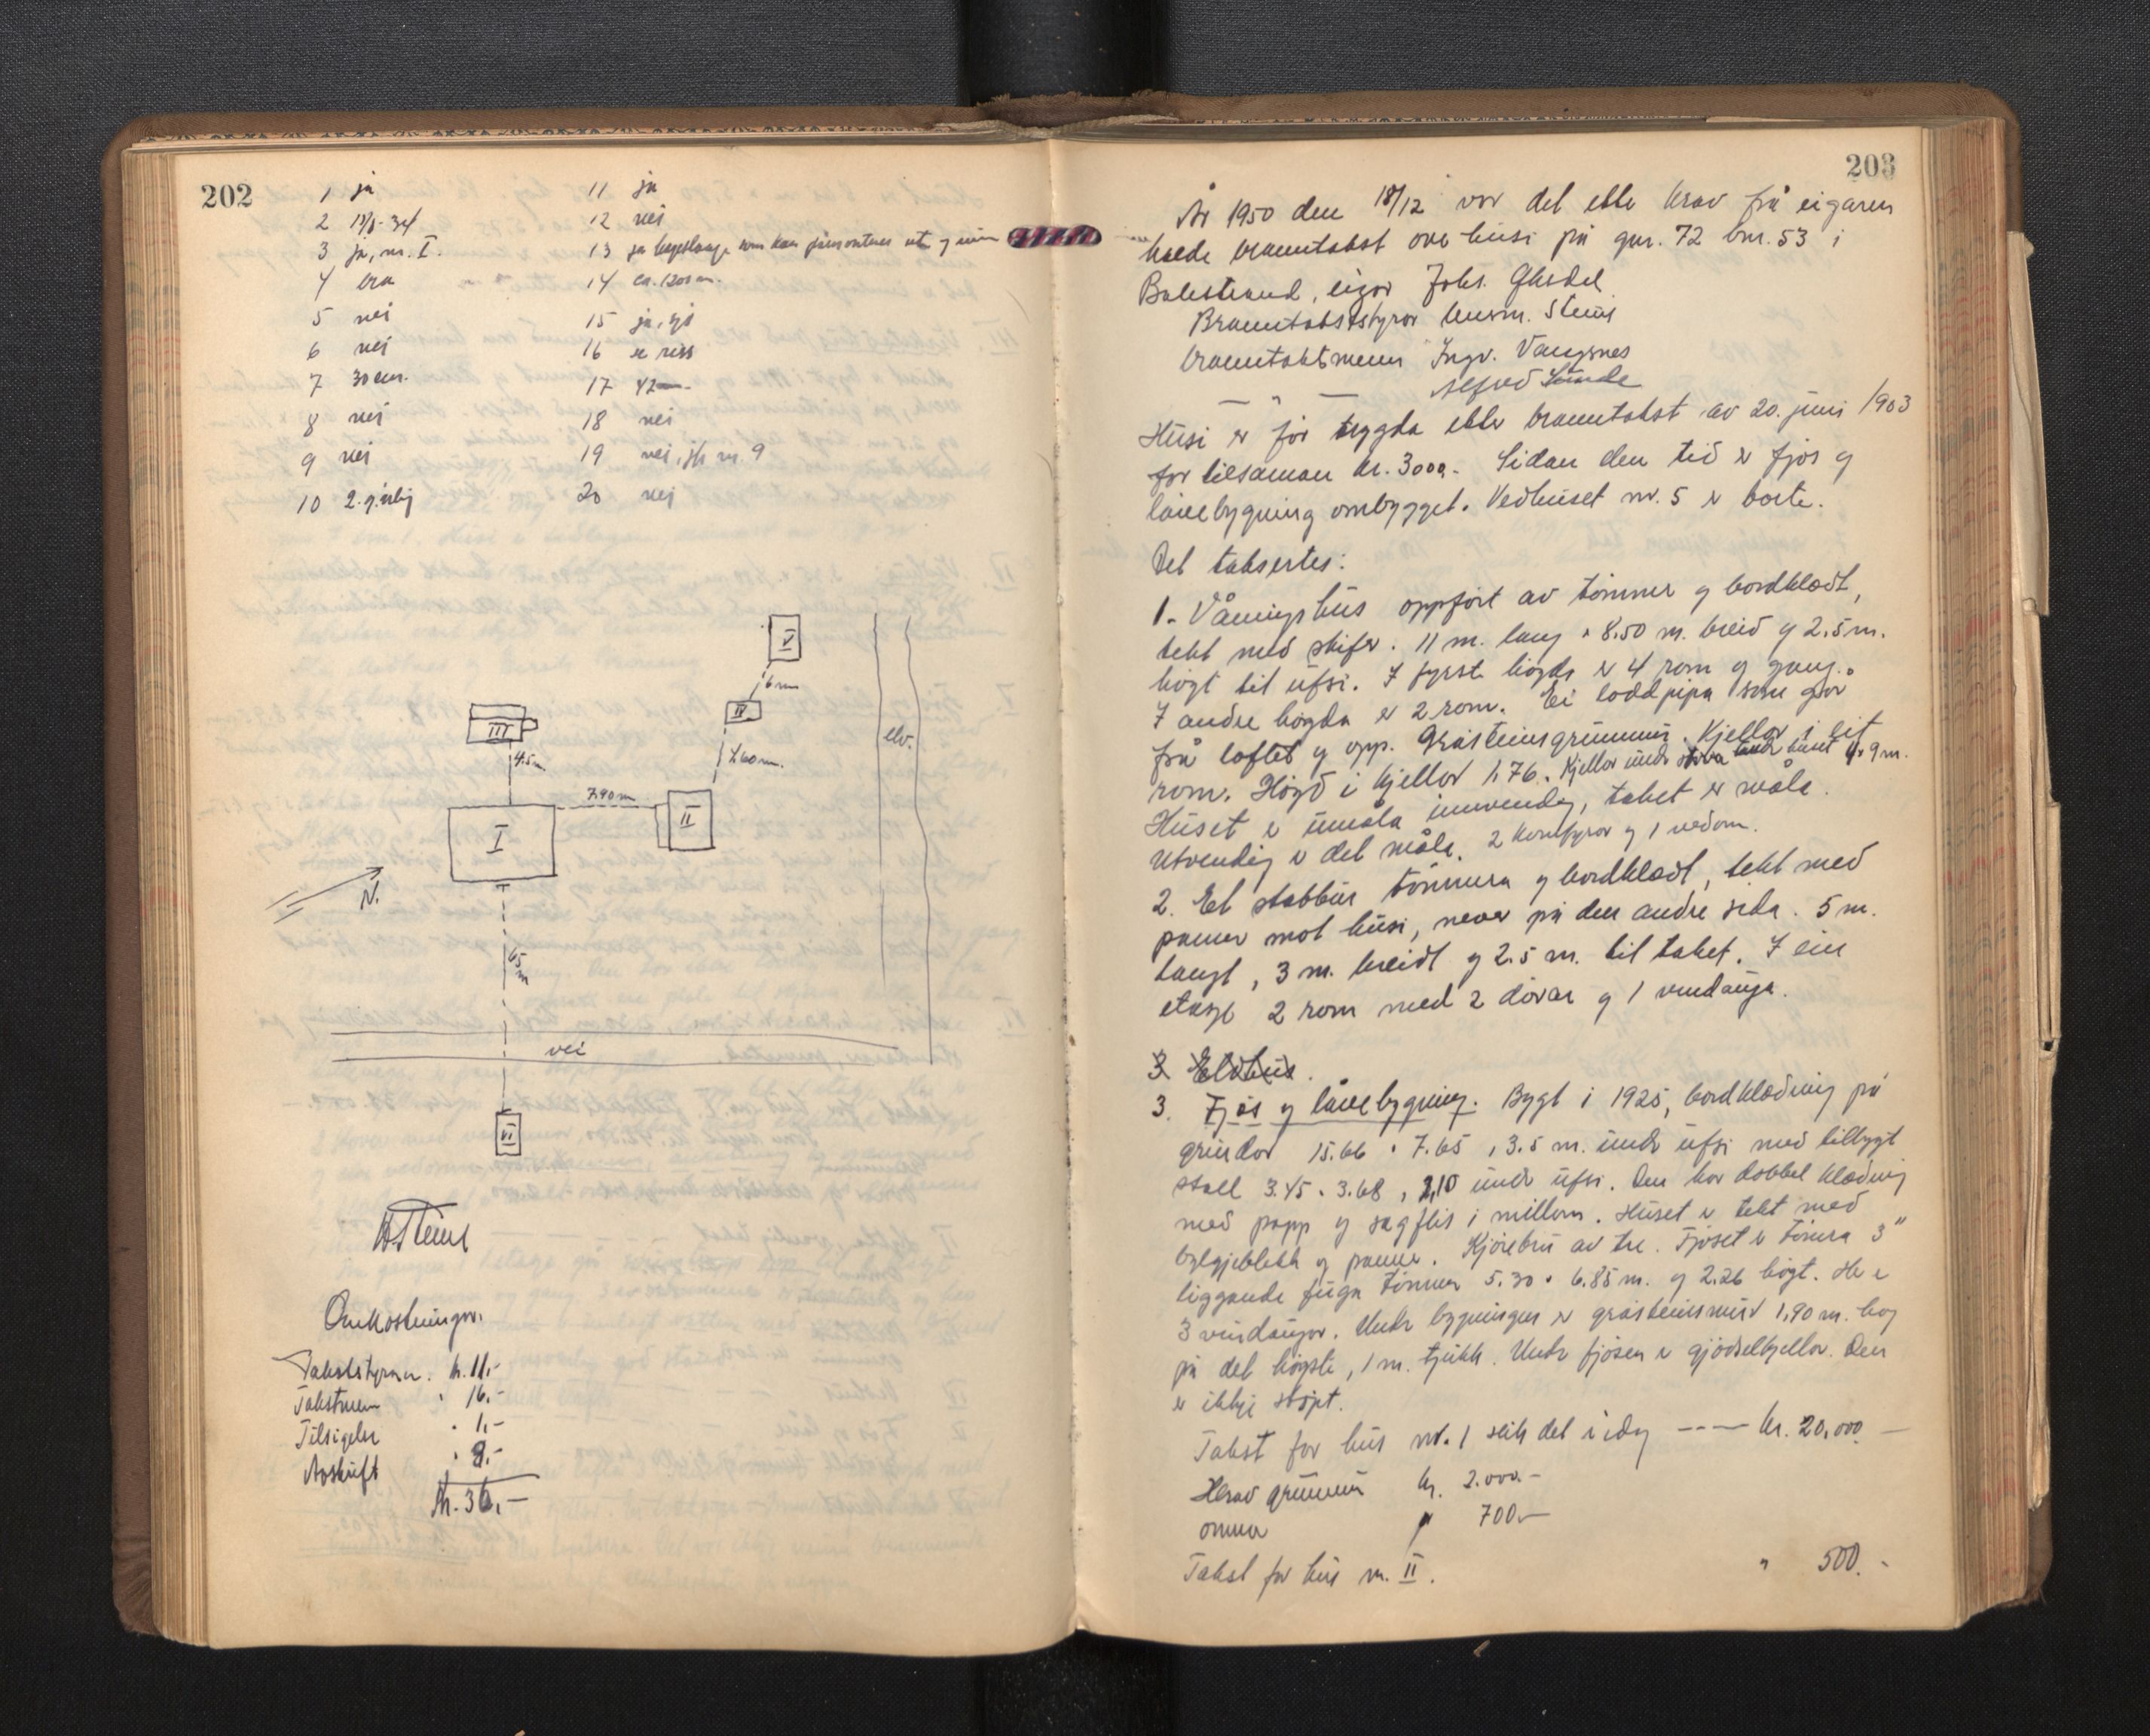 202
1 ja
2 18/8-34
3 ja, nr. I.
4 bra
5 nei
6 nei
7 30 cm.
8 nei
9 nei
10 2.
11 ja
12 nei
13 ja som kan ut og
14 ca. 1200 m.
15 ja,
16 se riss
17 42
18 nei
19 nei, jfr nr. 9
20 nei
V
6 m
IV
elv.
III
4.5 m
7.60 m.
7.90 m
II
I
N.
65 m
vei
VI
Omkostninger.
Takststyrar. kr. 11.-
Takstmenn " 16.-
Tilsigelse " 1.-
Avskrift " 8.-
Kr. 36.-
203
År 1950 den 18/12 var det etter krav frå eigaren
halde branntakst over husi på gnr. 72 bnr. 53 i
Balestrand, eigar Johs.
Branntakststyrar lensm. Steins
branntakstmenn Ingv. Vangsnes
Alfred Sunde
— " —
Husi er før trygda etter branntakst av 20. juni 1903
for tilsaman kr. 3000.- Sidan den tid er fjøs og
låvebygning ombygget. Vedhuset nr. 5 er borte.
Det taksertes:
1. Våningshus oppført av tømmer og bordklædt,
tekt med skifer. 11 m. lang × 8.50 m. breid og 2.5 m.
høgt til ufsi. I fyrste høgda er 4 rom og gang.
I andre høgda er 2 rom. Ei loddpipa som går
frå loftet og opp. Gråsteinsgrunnmur. Kjellar i eit
rom. Høgd i kjellar 1.76. Kjellar under stova 9 m.
Huset er umåla innvendig, taket er måla.
Utvendig er det måla. 2 komfyrar og 1 vedomn.
2. Et stabbur tømmra og bordklædt, tekt med
panner mot husi, never på den andre sida. 5 m.
langt, 3 m. breidt og 2.5 m. til taket. I ein
etasje 2 rom med 2 dørar og 1 vindauga.
3 Eldhus.
3. Fjøs og låvebygning. Bygt i 1925, bordklædning på
grindar 15.66 × 7.65, 3.5 m. under ufsi med tilbygt
stall 3.45 × 3.68, 2,10 under ufsi. Den har dobbel klædning
med papp og sagflis i millom. Huset er tekt med
bylgjeblekk og panner. Kjørebru av tre. Fjøset er tømra 3"
liggande fuga tømmer 5.30 × 6.85 m. og 2.26 høgt. Her er
3 vindaugor. Under bygningen er gråsteinsmur 1,90 m. høg
på det høgste, 1 m. tjukk. Under fjøsen er gjødselkjellar. Den
er ikkje støpt.
Takst for hus nr. 1 slik det er idag ---- kr. 20.000.—
Herav grunnmur kr. 2.000.-
omnar " 700.—
Takst for hus nr. II. " 500.-